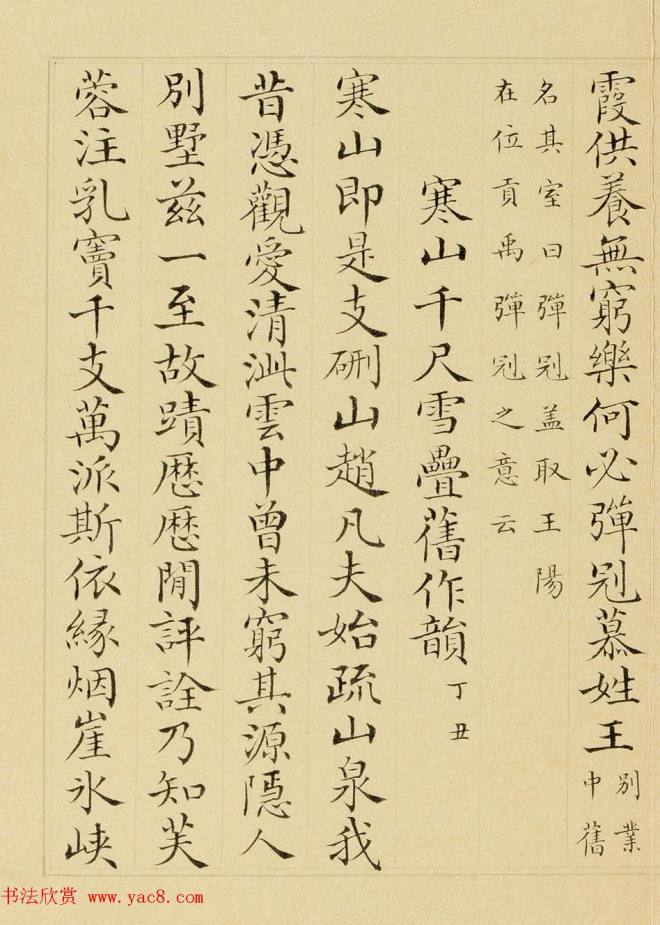 霞供養無窮樂何必彈冠慕姓王別業
中舊
名其室曰彈冠盖取王陽
在位貢禹彈冠之意云
寒山千尺雪疊舊作韻丁丑
寒山即是支硎山趙凡夫始疏山泉我
昔憑觀愛清泚雲中曾未窮其源隱人
別墅茲一至故蹟歷歷閒評詮乃知芙
蓉注乳竇千支萬派斯依緣烟崖氷峽
书法欣赏 www.yac8.com